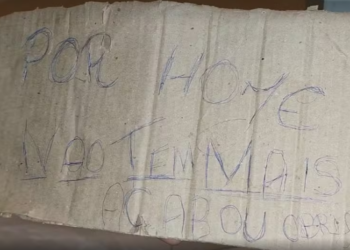 POR HOYE
NAO TEM MAIS
ACABOU